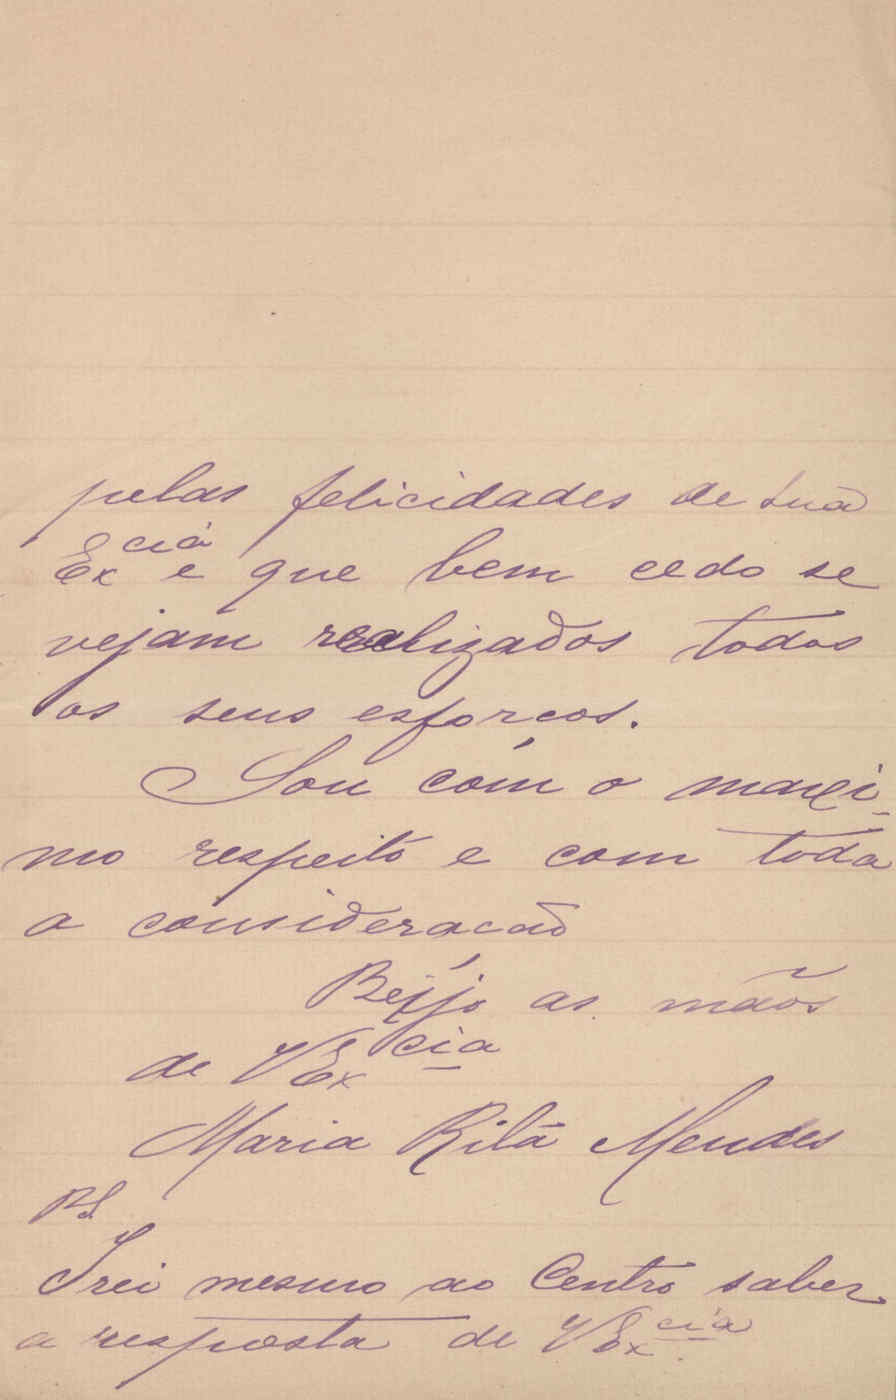 pelas felicidades de sua
Ex^cia e que bem cedo se
vejam realizados todos
os seus esforços.
Sou com o maxi-
mo respeito e com toda
a consideração
Beijo as mãos
de VEx^cia
Maria Rita Mendes
PS.
Irei mesmo ao Centro saber
a resposta de VEx^cia.